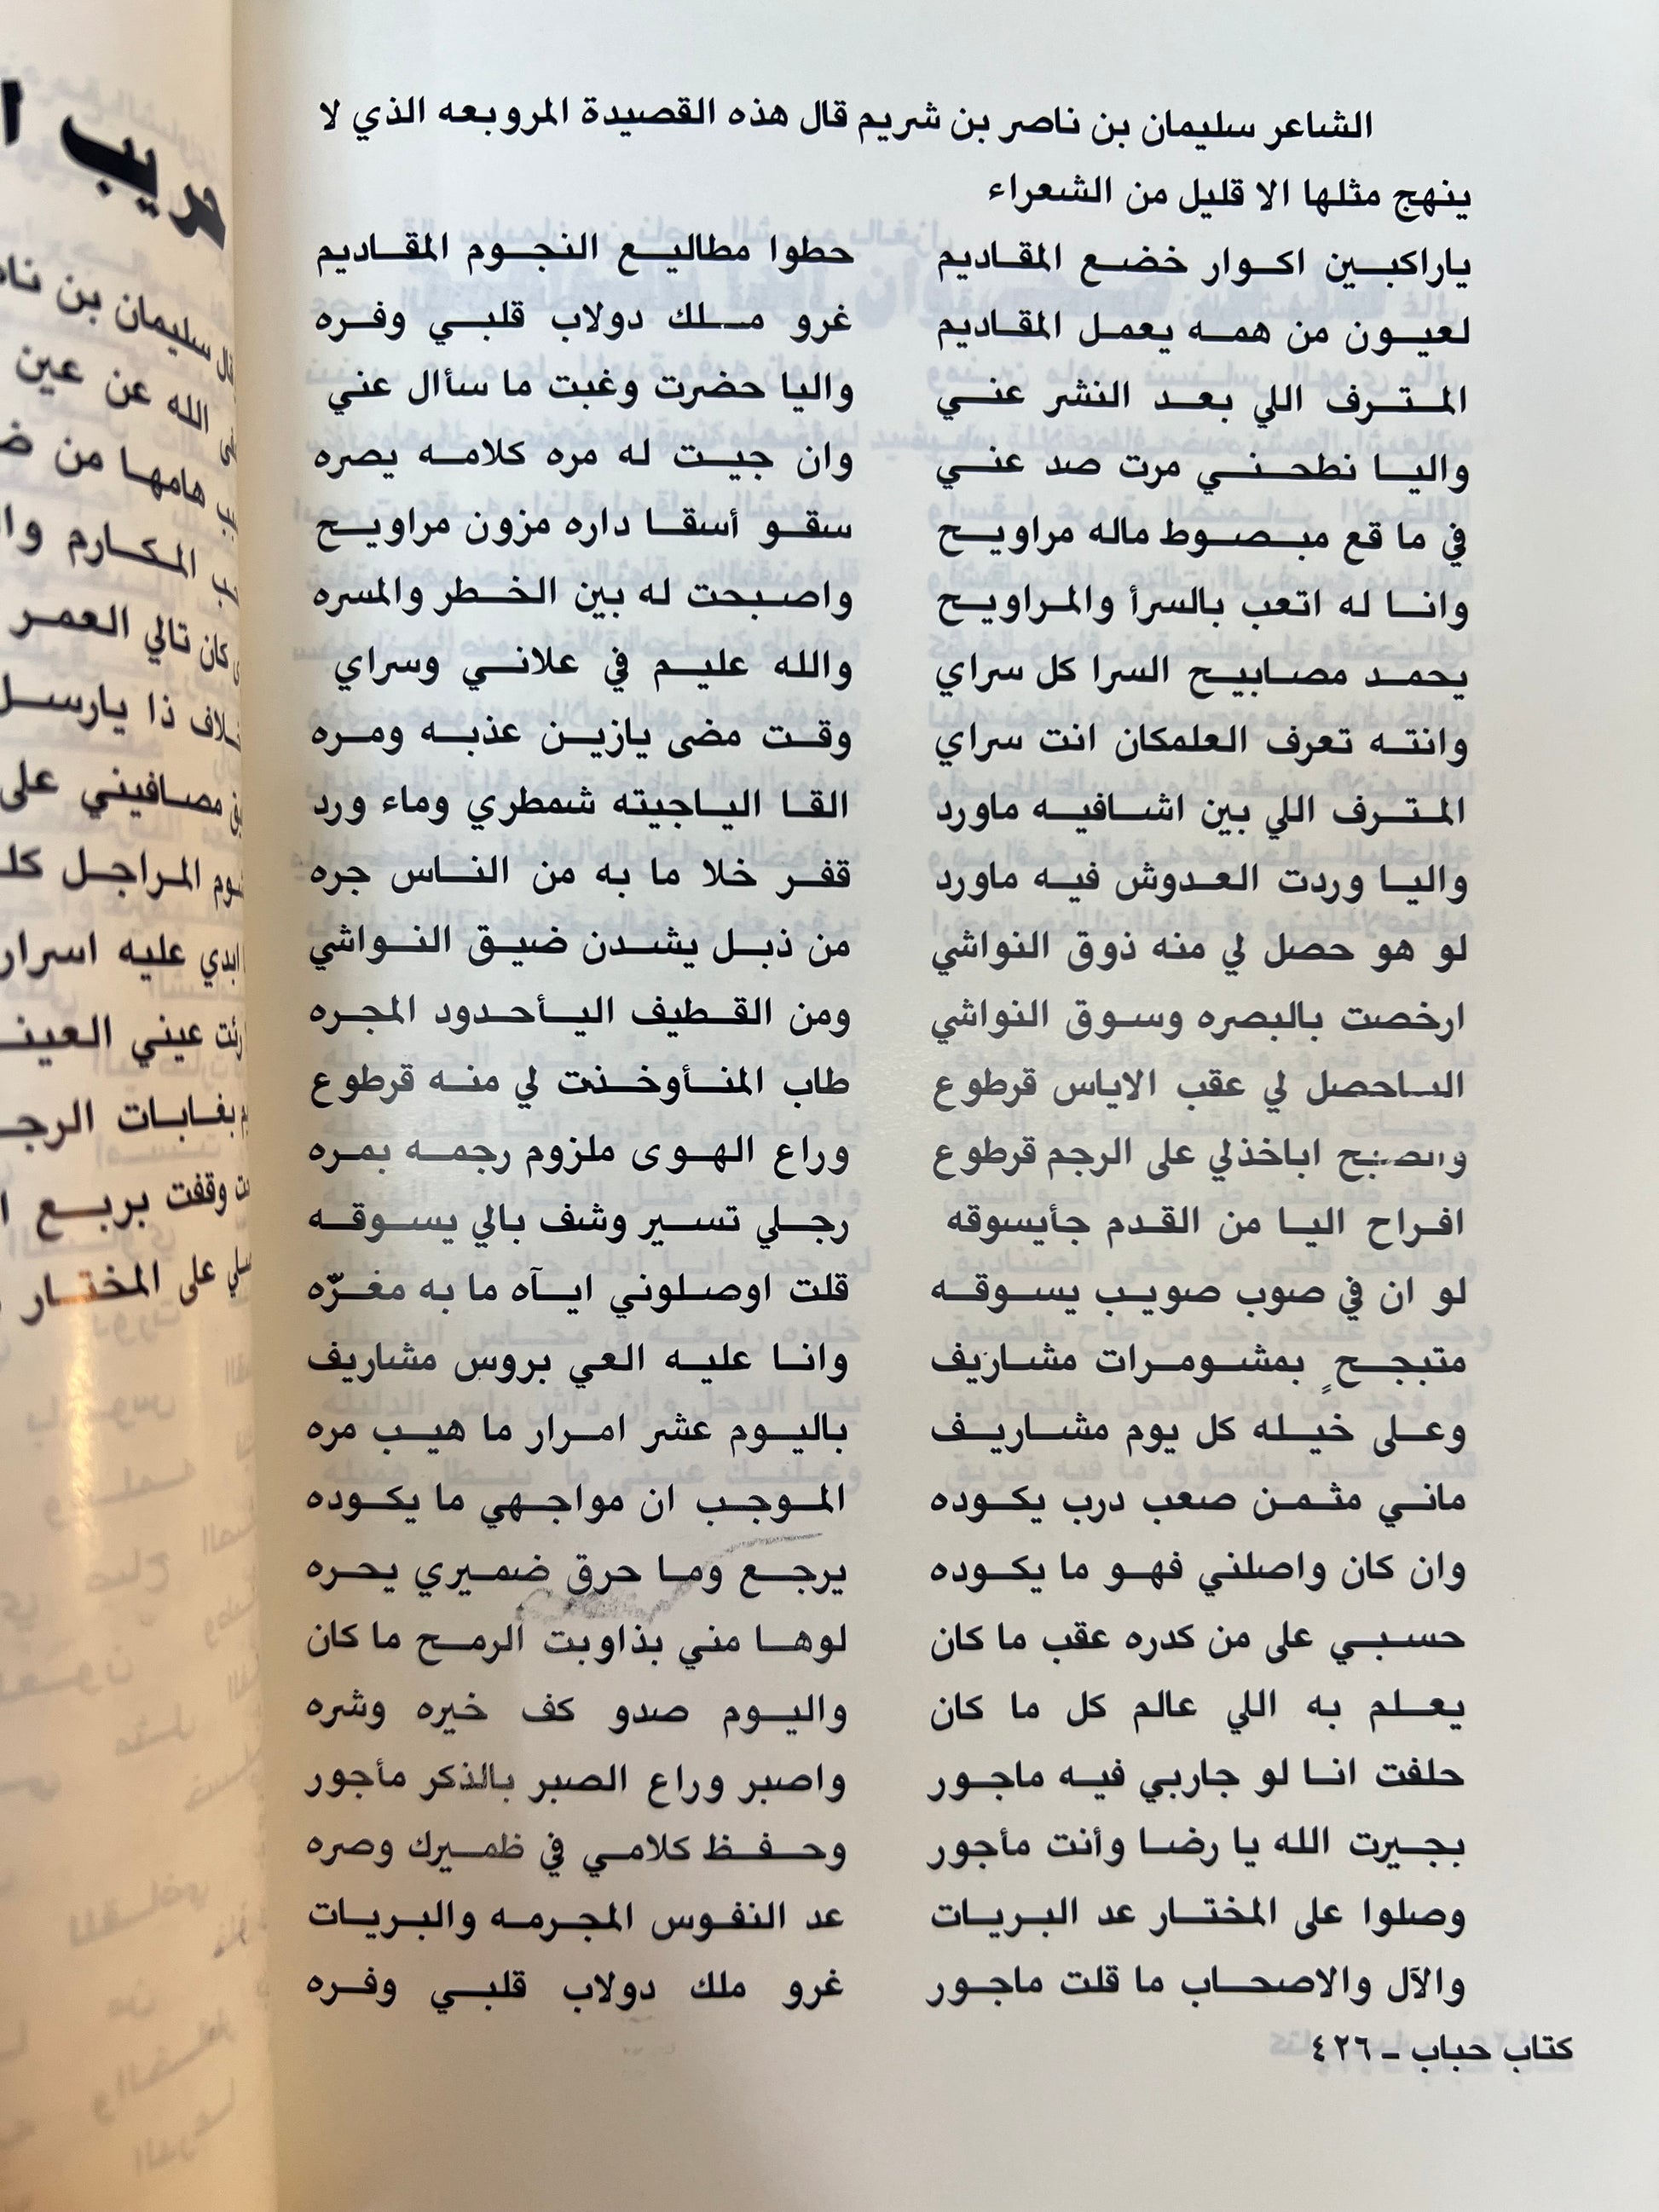 الشاعر سليمان بن ناصر بن شريم قال هذه القصيدة المروبعه الذي لا
ينهج مثلها الا قليل من الشعراء
ياراكبين اكوار خضع المقاديم حطوا مطاليع النجوم المقاديم
لعيون من همه يعمل المقاديم غرو ملك دولاب قلبي وفره
المترف اللي بعد النشر عني واليا حضرت وغبت ما سأال عني
واليا نطحني مرت صد عني وان جيت له مره كلامه يصره
في ما قع مبصوط ماله مراويح سقو أسقا داره مزون مراويح
وانا له اتعب بالسرأ والمراويح واصبحت له بين الخطر والمسره
يحمد مصابيح السرا كل سراي والله عليم في علاني وسراي
وانته تعرف العلمكان انت سراي وقت مضى يازين عذبه ومره
المترف اللي بين اشافيه ماورد القا الياجيته شمطري وماء ورد
واليا وردت العدوش فيه ماورد قفر خلا ما به من الناس جره
لو هو حصل لي منه ذوق النواشي من ذبل يشدن ضيق النواشي
ارخصت بالبصره وسوق النواشي ومن القطيف اليأحدود المجره
الياحصل لي عقب الاياس قرطوع طاب المنأوخذت لي منه قرطوع
والصبح اباخذلي على الرجم قرطوع وراع الهوى ملزوم رجمه بمره
افراح اليا من القدم جأيسوقه رجلي تسير وشف بالي يسوقه
لو ان في صوب صويب يسوقه قلت اوصلوني ايآه ما به مغرّه
متبجحٍ بمشومرات مشاريف وانا عليه العي بروس مشاريف
وعلى خيله كل يوم مشاريف باليوم عشر امرار ما هيب مره
ماني مثمن صعب درب يكوده الموجب ان مواجهي ما يكوده
وان كان واصلني فهو ما يكوده يرجع وما حرق ضميري يحره
حسبي على من كدره عقب ما كان لوها مني بذاوبت الرمح ما كان
يعلم به اللي عالم كل ما كان واليوم صدو كف خيره وشره
حلفت انا لو جاربي فيه ماجور واصبر وراع الصبر بالذكر مأجور
بجيرت الله يا رضا وأنت مأجور وحفظ كلامي في ظميرك وصره
وصلوا على المختار عد البريات عد النفوس المجرمه والبريات
والآل والاصحاب ما قلت ماجور غرو ملك دولاب قلبي وفره
كتاب حباب ـ ٤٢٦